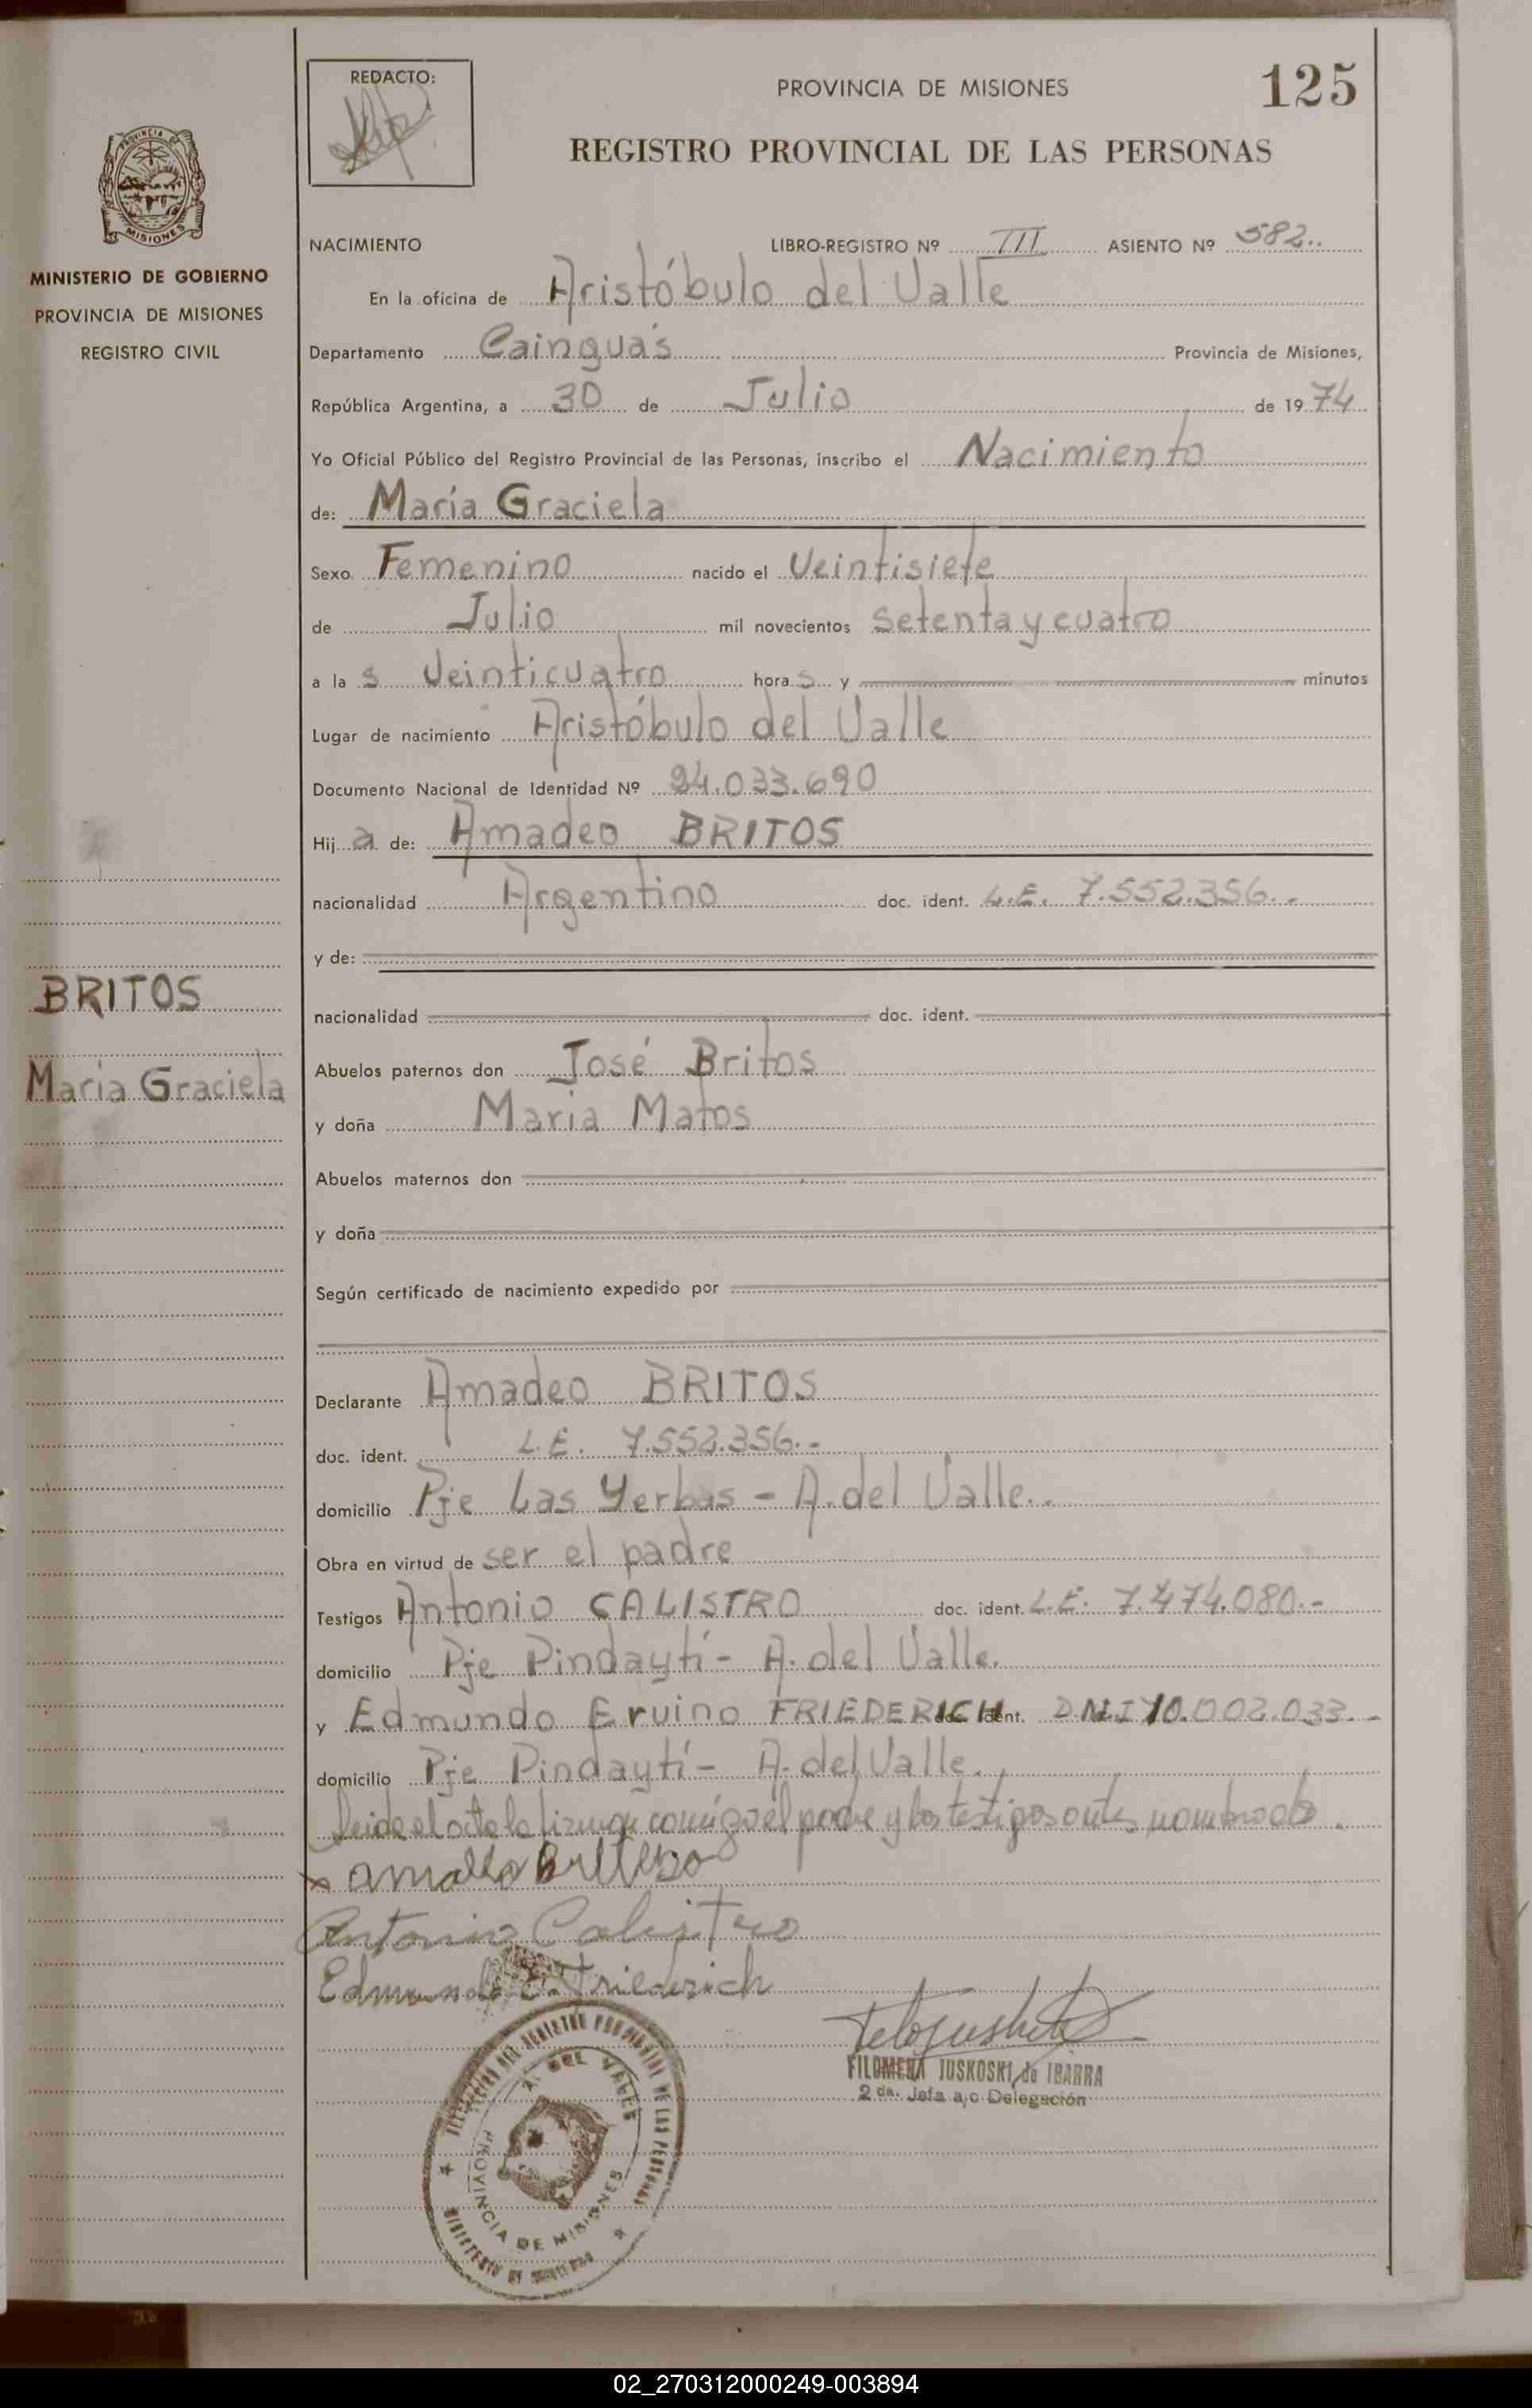 REDACTO:
PROVINCIA DE MISIONES
125
REGISTRO PROVINCIAL DE LAS PERSONAS
PROVINCIA DE
MISIONES
MINISTERIO DE GOBIERNO
PROVINCIA DE MISIONES
REGISTRO CIVIL
NACIMIENTO LIBRO-REGISTRO Nº III ASIENTO Nº 582..
En la oficina de Aristóbulo del Valle
Departamento Cainguás Provincia de Misiones,
República Argentina, a 30 de Julio de 1974
Yo Oficial Público del Registro Provincial de las Personas, inscribo el Nacimiento
de: María Graciela
Sexo Femenino nacido el Veintisiete
de Julio mil novecientos setenta y cuatro
a la s Veinticuatro hora s y minutos
Lugar de nacimiento Aristóbulo del Valle
Documento Nacional de Identidad Nº 24.033.690
Hij a de: Amadeo BRITOS
nacionalidad Argentino doc. ident. L.E. 7.552.356.-
y de:
BRITOS
nacionalidad doc. ident.
Abuelos paternos don José Britos
María Graciela
y doña Maria Matos
Abuelos maternos don
y doña
Según certificado de nacimiento expedido por
Declarante Amadeo BRITOS
doc. ident. L.E. 7.552.356.-
domicilio Pje Las Yerbas - A. del Valle..
Obra en virtud de ser el padre
Testigos Antonio CALISTRO doc. ident. L.E. 7.474.080.-
domicilio Pje Pindaytí - A. del Valle.
y Edmundo Ervino FRIEDERICH ident. D.N.I 10.002.033.-
domicilio Pje Pindaytí - A. del Valle.
Leida el acta la firman conmigo el padre y los testigos antes nombrado.
Antonio Calistro
Edmundo E. Friederich
FILOMENA JUSKOSKI de IBARRA
2da. Jefa a/c Delegación
DELEGACION DEL REGISTRO PROVINCIAL DE LAS PERSONAS
A. DEL VALLE
PROVINCIA DE MISIONES
MINISTERIO DE GOBIERNO
02_270312000249-003894